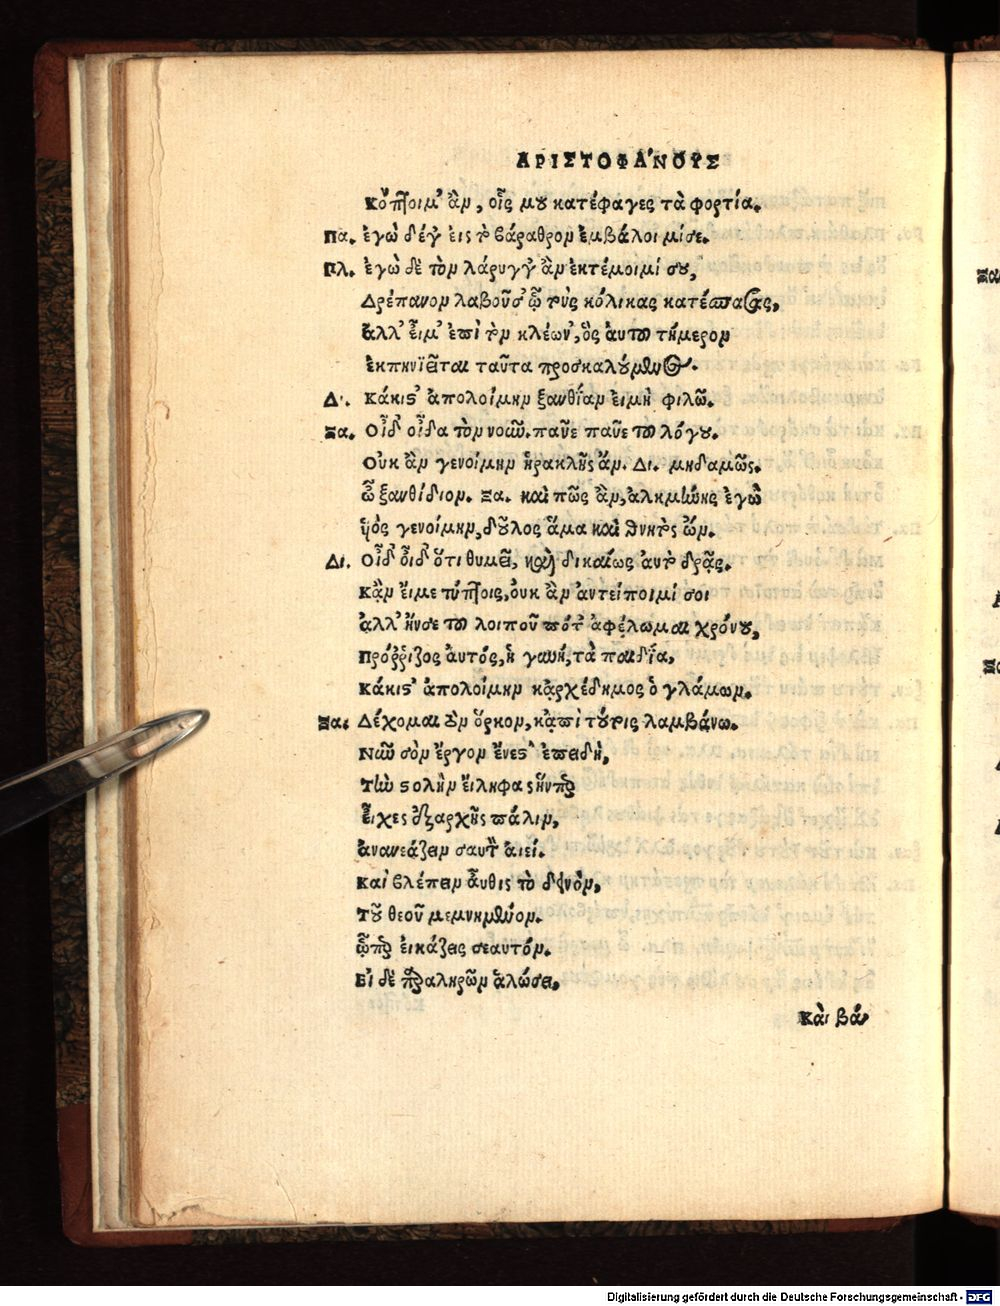 ΑΡΙΣΤΟΦΑ'ΝΟΥΣ
Κόπτοιμ' ἂν, οἷς μου κατέφαγες τὰ φορτία.
Πα. ἐγὼ δέ γ' εἰς τὸ βάραθρον ἐμβάλοιμί σε.
Πλ. ἐγὼ δὲ τὸν λάρυγγ' ἂν ἐκτέμοιμί σου,
Δρέπανον λαβοῦσ' ᾧ τοὺς κόλικας κατέσπασας,
ἀλλ' εἶμ' ἐπὶ τὸν κλέων', ὃς αὐτοῦ τήμερον
ἐκπηνιεῖται ταῦτα προσκαλούμενος.
Δι. Κάκιστ' ἀπολοίμην ξανθίαν εἰ μὴ φιλῶ.
Ξα. Οἶδ' οἶδα τὸν νοῦν. παῦε παῦε τοῦ λόγου.
Οὐκ ἂν γενοίμην ἡρακλῆς ἄν. Δι. μηδαμῶς.
ὦ ξανθίδιον. Ξα. καὶ πῶς ἂν, ἀλκμήνης ἐγὼ
ὑὸς γενοίμην, δοῦλος ἅμα καὶ θνητὸς ὤν.
Δι. Οἶδ' οἶδ' ὅτι θυμεῖ, καὶ δικαίως αὐτὸ δρᾷς.
Κἂν εἴ με τύπτοις, οὐκ ἂν ἀντείποιμί σοι
ἀλλ' ἤν σε τοῦ λοιποῦ ποτ' ἀφέλωμαι χρόνου,
Πρόῤῥιζος αὐτός, ἡ γυνή, τὰ παιδία,
Κάκιστ' ἀπολοίμην κἀρχέδημος ὁ γλάμων.
Ξα. Δέχομαι τὸν ὅρκον, κἀπὶ τούτοις λαμβάνω.
Νῦν σὸν ἔργον ἔνεστ' ἐπειδὴ,
Τὴν στολὴν εἴληφας ἥνπερ
εἶχες ἐξαρχῆς πάλιν,
ἀνανεάζειν σαυτὸν αἰεί.
Καὶ βλέπειν αὖθις τὸ δεινὸν,
Τοῦ θεοῦ μεμνημένον.
ᾧπερ εἰκάζεις σεαυτόν.
Εἰ δὲ παραληρῶν ἁλώσει,
Κὰι βά
Digitalisierung gefördert durch die Deutsche Forschungsgemeinschaft - DFG